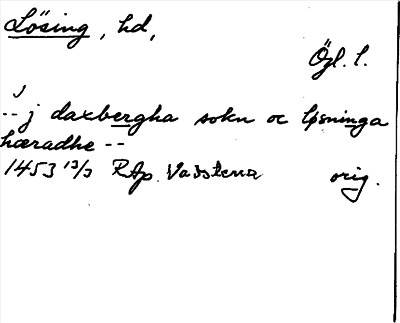 Lösing, hd,
Ögl. l.
j
-- j daxbergha sokn oc løsninga
hæradhe --
1453 13/3 RAp. Vadstena orig.